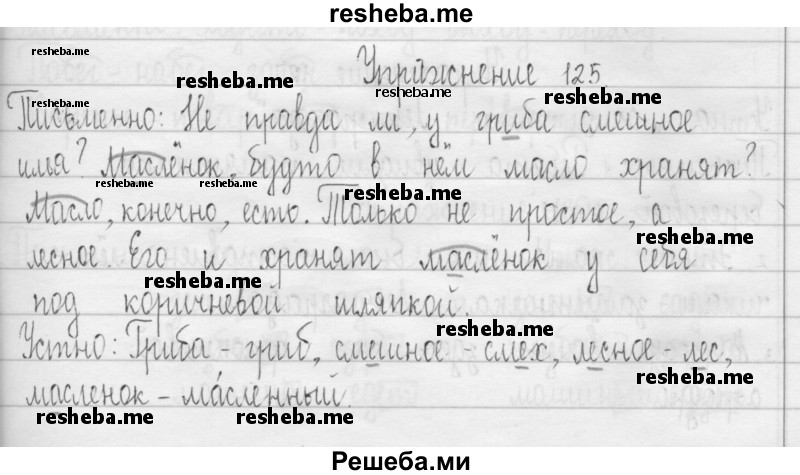 resheba.me
resheba.me
Упражнение 125
resheba.me
resheba.me resheba.me
resheba.me
Письменно: Не правда ли, у гриба смешное
имя? Маслёнок, будто в нём масло хранят?
resheba.me resheba.me resheba.me
Масло, конечно, есть. Только не простое, а
resheba.me
лесное. Его и хранят маслёнок у себя
resheba.me
под коричневой шляпкой.
resheba.me
Устно: Гриба, гриб, смешное - смех, лесное - лес,
resheba.me
масленок - масленный.
resheba.me resheba.me
Решеба.ми